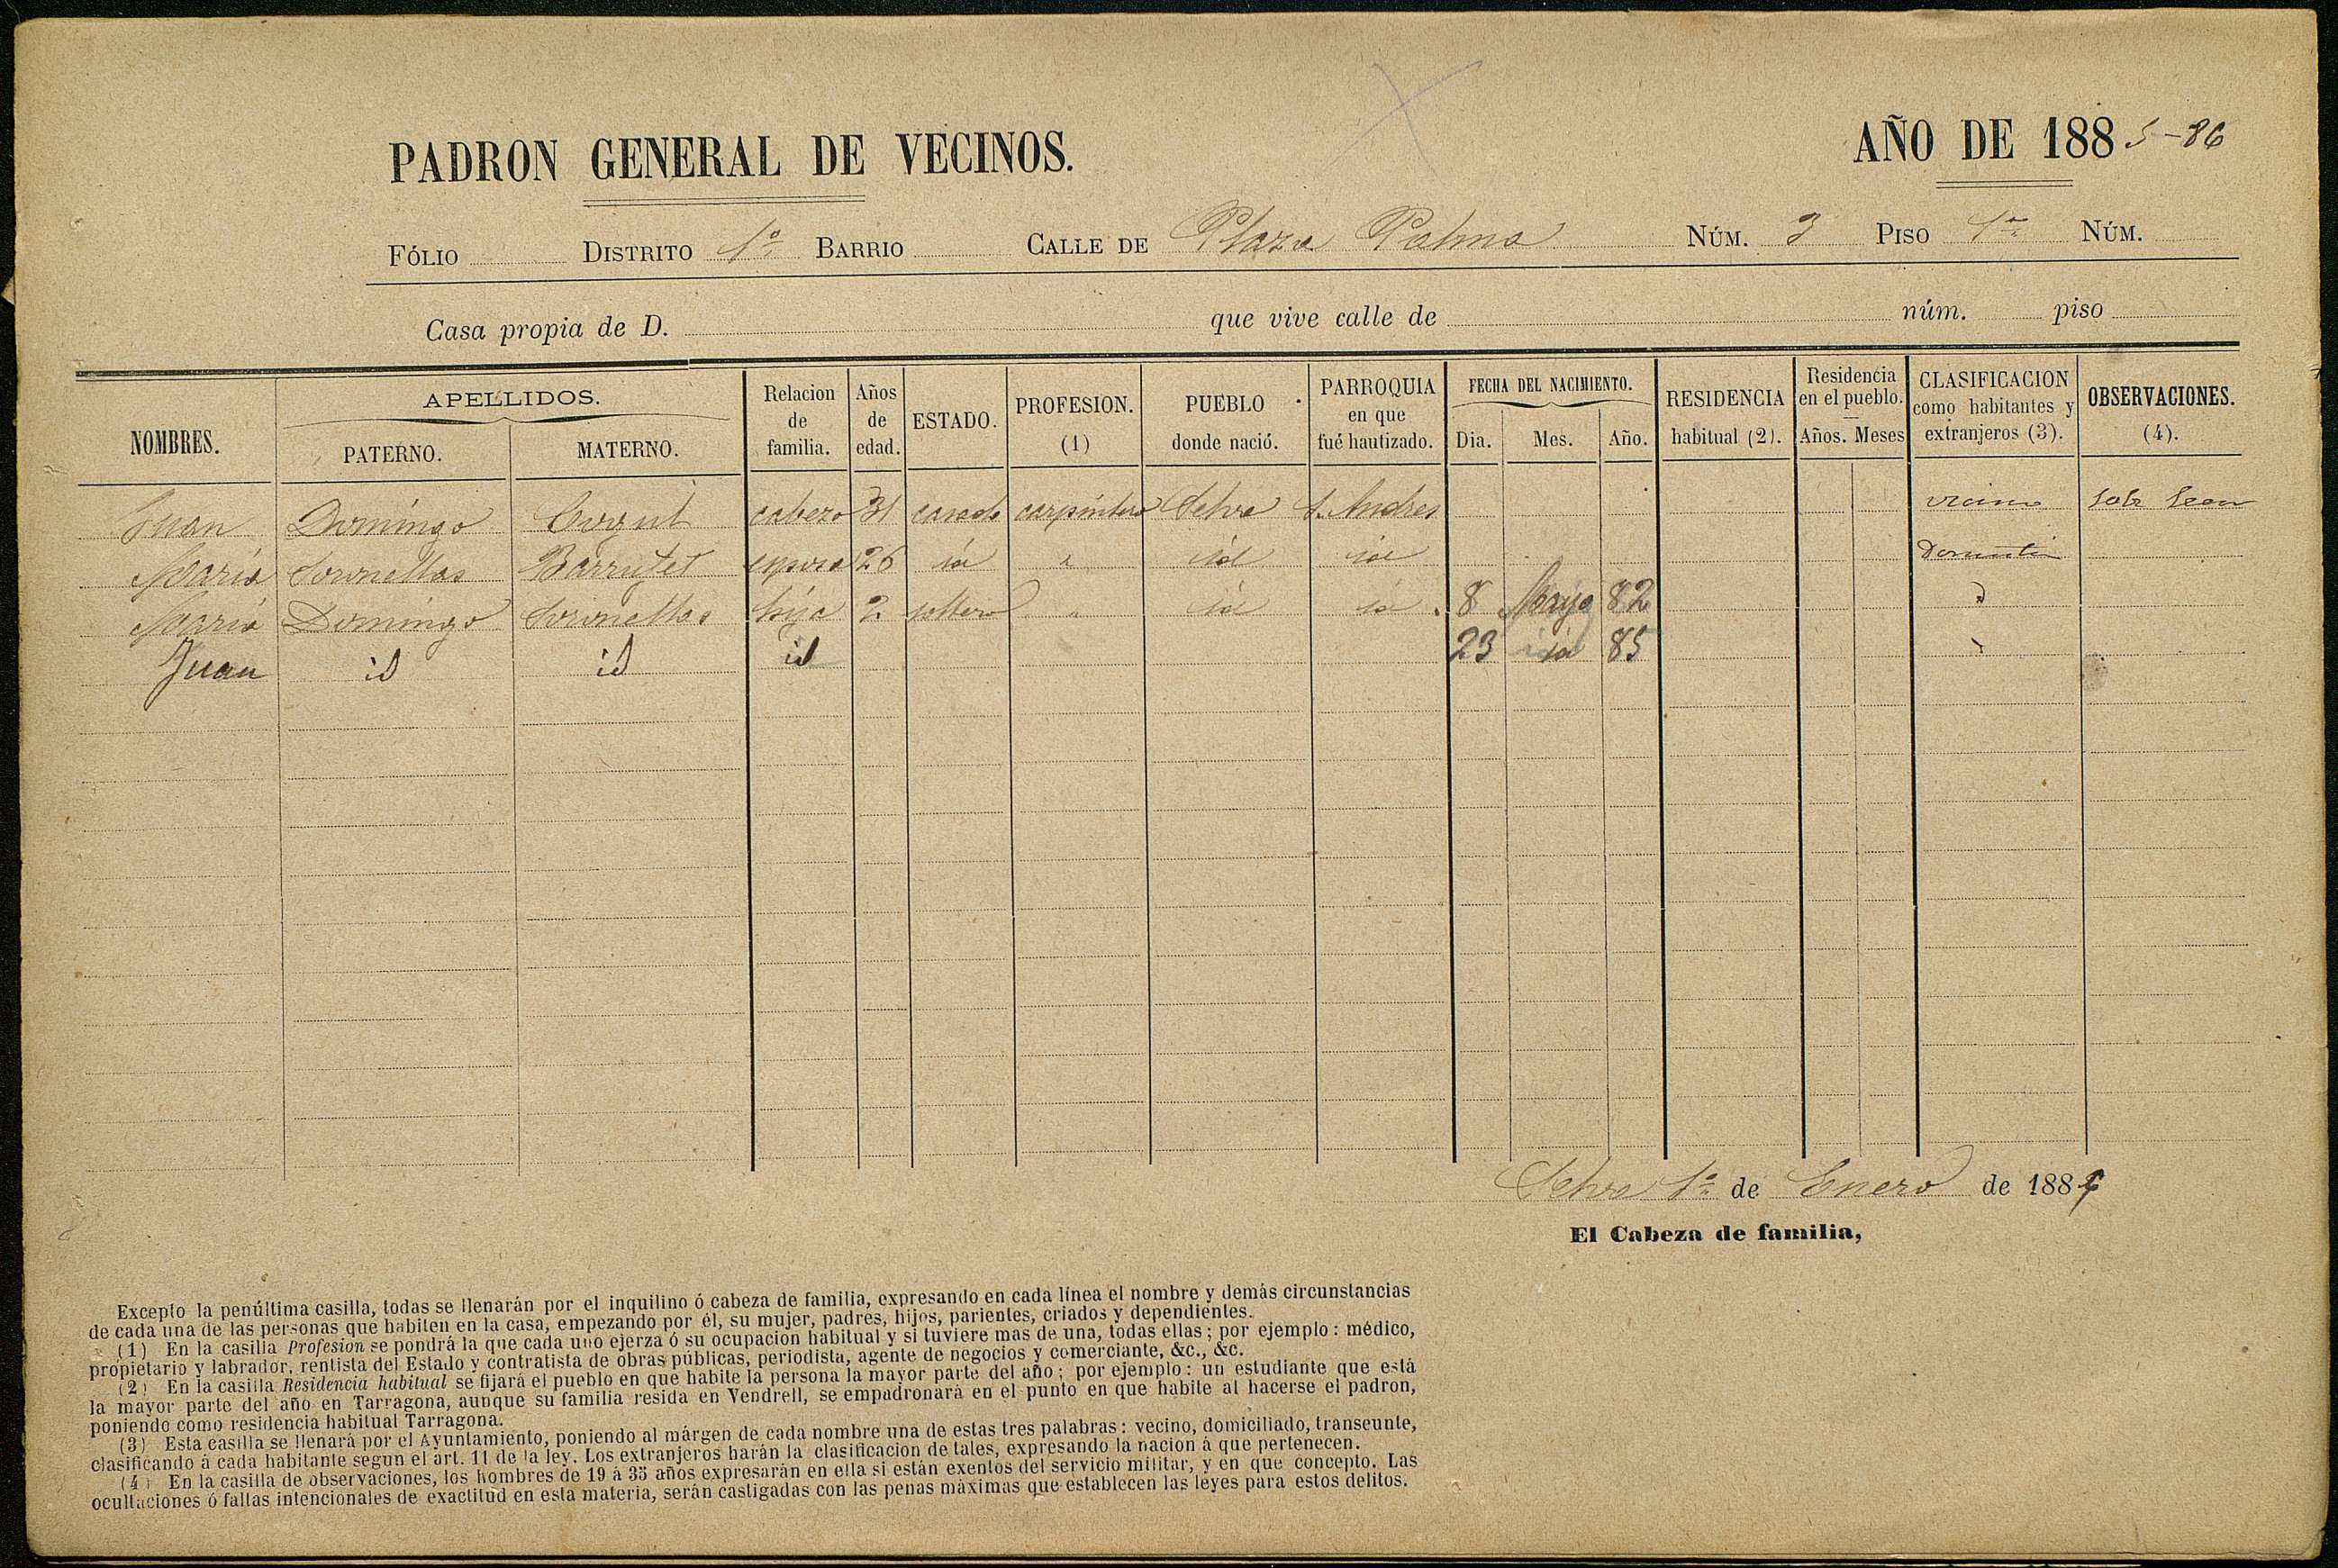 PADRON GENERAL DE VECINOS. AÑO DE 1885-86
FÓLIO DISTRITO 1º BARRIO CALLE DE Plaza Palma NÚM. 3 PISO 1º NÚM.
Casa propia de D. que vive calle de núm. piso
NOMBRES. APELLIDOS. PATERNO. MATERNO. Relacion de familia. Años de edad. ESTADO. PROFESION. (1) PUEBLO donde nació. PARROQUIA en que fué bautizado. FECHA DEL NACIMIENTO. Dia. Mes. Año. RESIDENCIA habitual (2). Residencia en el pueblo. Años. Meses CLASIFICACION como habitantes y extranjeros (3). OBSERVACIONES. (4).
Juan Domingo cabeza 31 casado carpintero Selva S. Andres vecino
Maria Sornellas Barrufet esposa 26 id " id id
Maria Domingo Sornellas hija 2 soltera " id id 8 Mayo 82 "
Juan id id id 23 id 85 "
Selva 1º de Enero de 1884
El Cabeza de familia,
Excepto la penúltima casilla, todas se llenarán por el inquilino ó cabeza de familia, expresando en cada línea el nombre y demás circunstancias
de cada una de las personas que habiten en la casa, empezando por él, su mujer, padres, hijos, parientes, criados y dependientes.
(1) En la casilla Profesion se pondrá la que cada uno ejerza ó su ocupacion habitual y si tuviere mas de una, todas ellas; por ejemplo: médico,
propietario y labrador, rentista del Estado y contratista de obras públicas, periodista, agente de negocios y comerciante, &c., &c.
(2) En la casilla Residencia habitual se fijará el pueblo en que habite la persona la mayor parte del año; por ejemplo: un estudiante que está
la mayor parte del año en Tarragona, aunque su familia resida en Vendrell, se empadronará en el punto en que habite al hacerse el padron,
poniendo como residencia habitual Tarragona.
(3) Esta casilla se llenará por el Ayuntamiento, poniendo al márgen de cada nombre una de estas tres palabras: vecino, domiciliado, transeunte,
clasificando á cada habitante segun el art. 11 de la ley. Los extranjeros harán la clasificacion de tales, expresando la nacion á que pertenecen.
(4) En la casilla de observaciones, los hombres de 19 á 35 años expresarán en ella si están exentos del servicio militar, y en que concepto. Las
ocultaciones ó faltas intencionales de exactitud en esta materia, serán castigadas con las penas máximas que establecen las leyes para estos delitos.